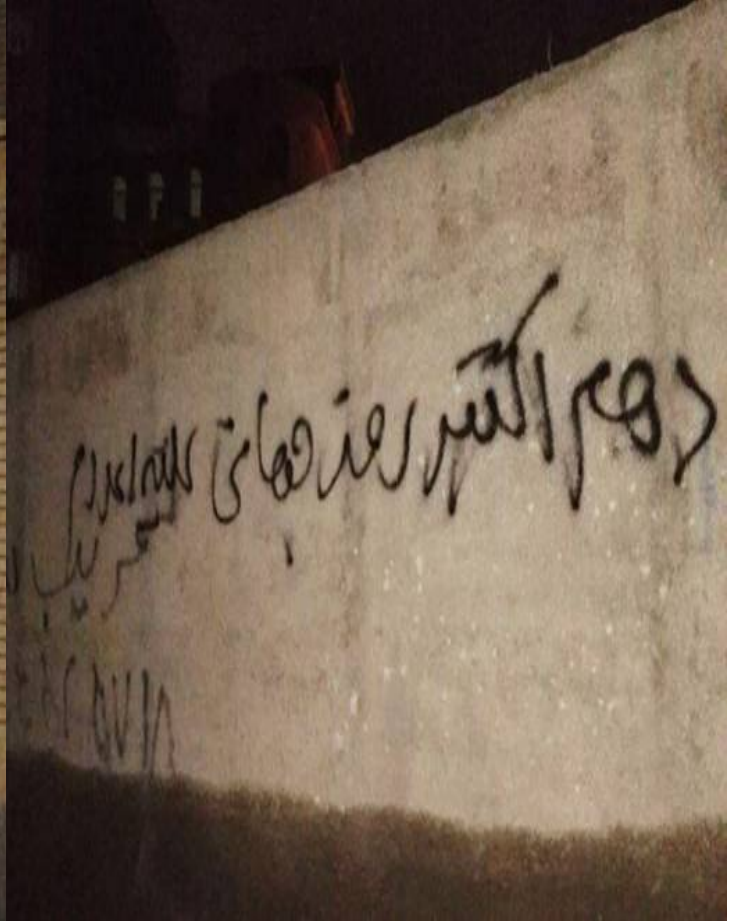 دهم اکتبر روز جهانی علیه اعدام
تخریب